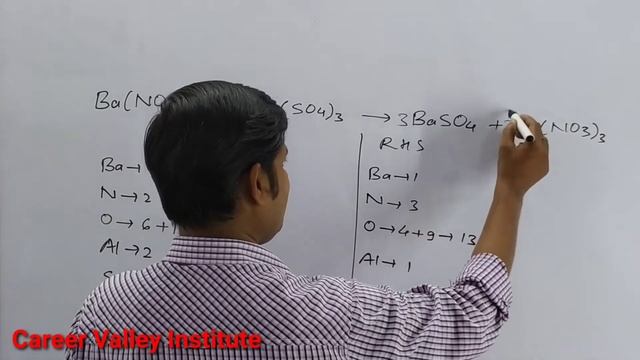 Ba(NO (SO4)3 → 3BaSO4 + (NO3)3
RHS
Ba → Ba → 1
N → 2 N → 3
O → 6 + 1 O → 4 + 9 → 13
Al → 2 Al → 1
Career Valley Institute